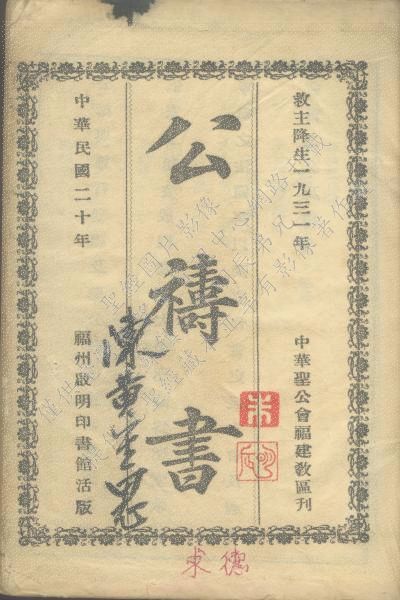 救主降生一九三一年
中華聖公會福建教區刊
公禱書
中華民國二十年
福州啟明印書館活版
陳黃
求德